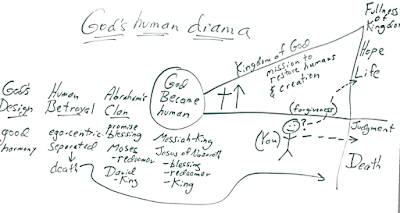 God's human drama
Fullness
of Kingdom
Kingdom of God
mission to
restore humans
& creation
Hope
Life
God's
Design
good
harmony
Human
Betrayal
ego-centric
separated
death
Abraham's
Clan
promise
blessing
Moses
-redeemer
David
-King
God
Became
human
Messiah-King
Jesus of Nazareth
-blessing
-redeemer
-King
(forgiveness)
?
(You)
Judgment
Death